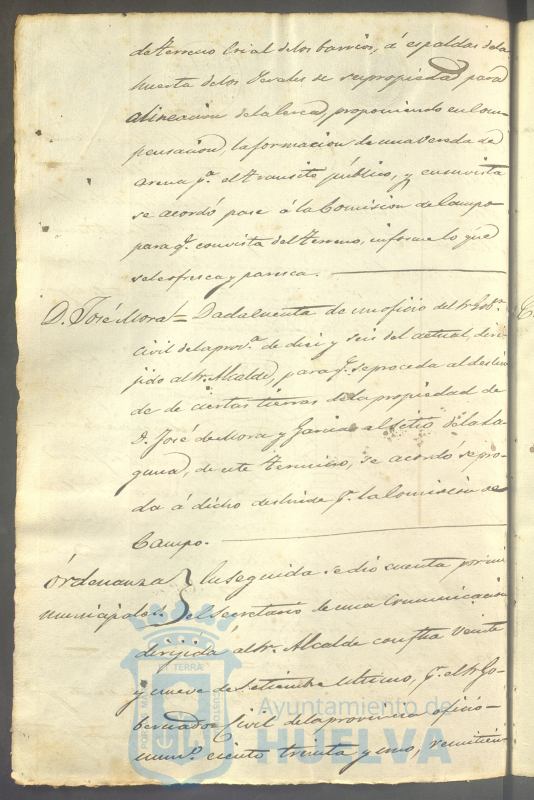 de terreno erial de los barrios, á espaldas de la
huerta de los de su propiedad, para
alineacion de la cerca, proponiendo en com-
pensacion, la formacion de una vereda de
arena pª. el transito público, y en su vista
se acordó pase á la Comision de Campo
para qª. con vista del terreno, informe lo que
se le ofresca y paresca.
D. José Mora = Dada cuenta de un oficio del Sr. Gobr.
Civil de la provª. de diez y seis del actual, diri-
jido al Sr. Alcalde, para qª. se proceda al deslin
de de ciertas tierras de la propiedad de
D. José de Mora y Garcia al sitio de la La-
guna, de este termino, se acordó se pro-
da á dicho deslinde pr. la Comision de
Campo.
Ordenanzas municipales. En seguida se dió cuenta por mi
el Secretario de una Comunicacion
dirijida al Sr. Alcalde con fha veinte
y nueve de Setiembre último, pr. el Sr. Go-
bernador Civil de la provincia oficio
numº. ciento treinta y uno, remitien-
Ayuntamiento de
HUELVA